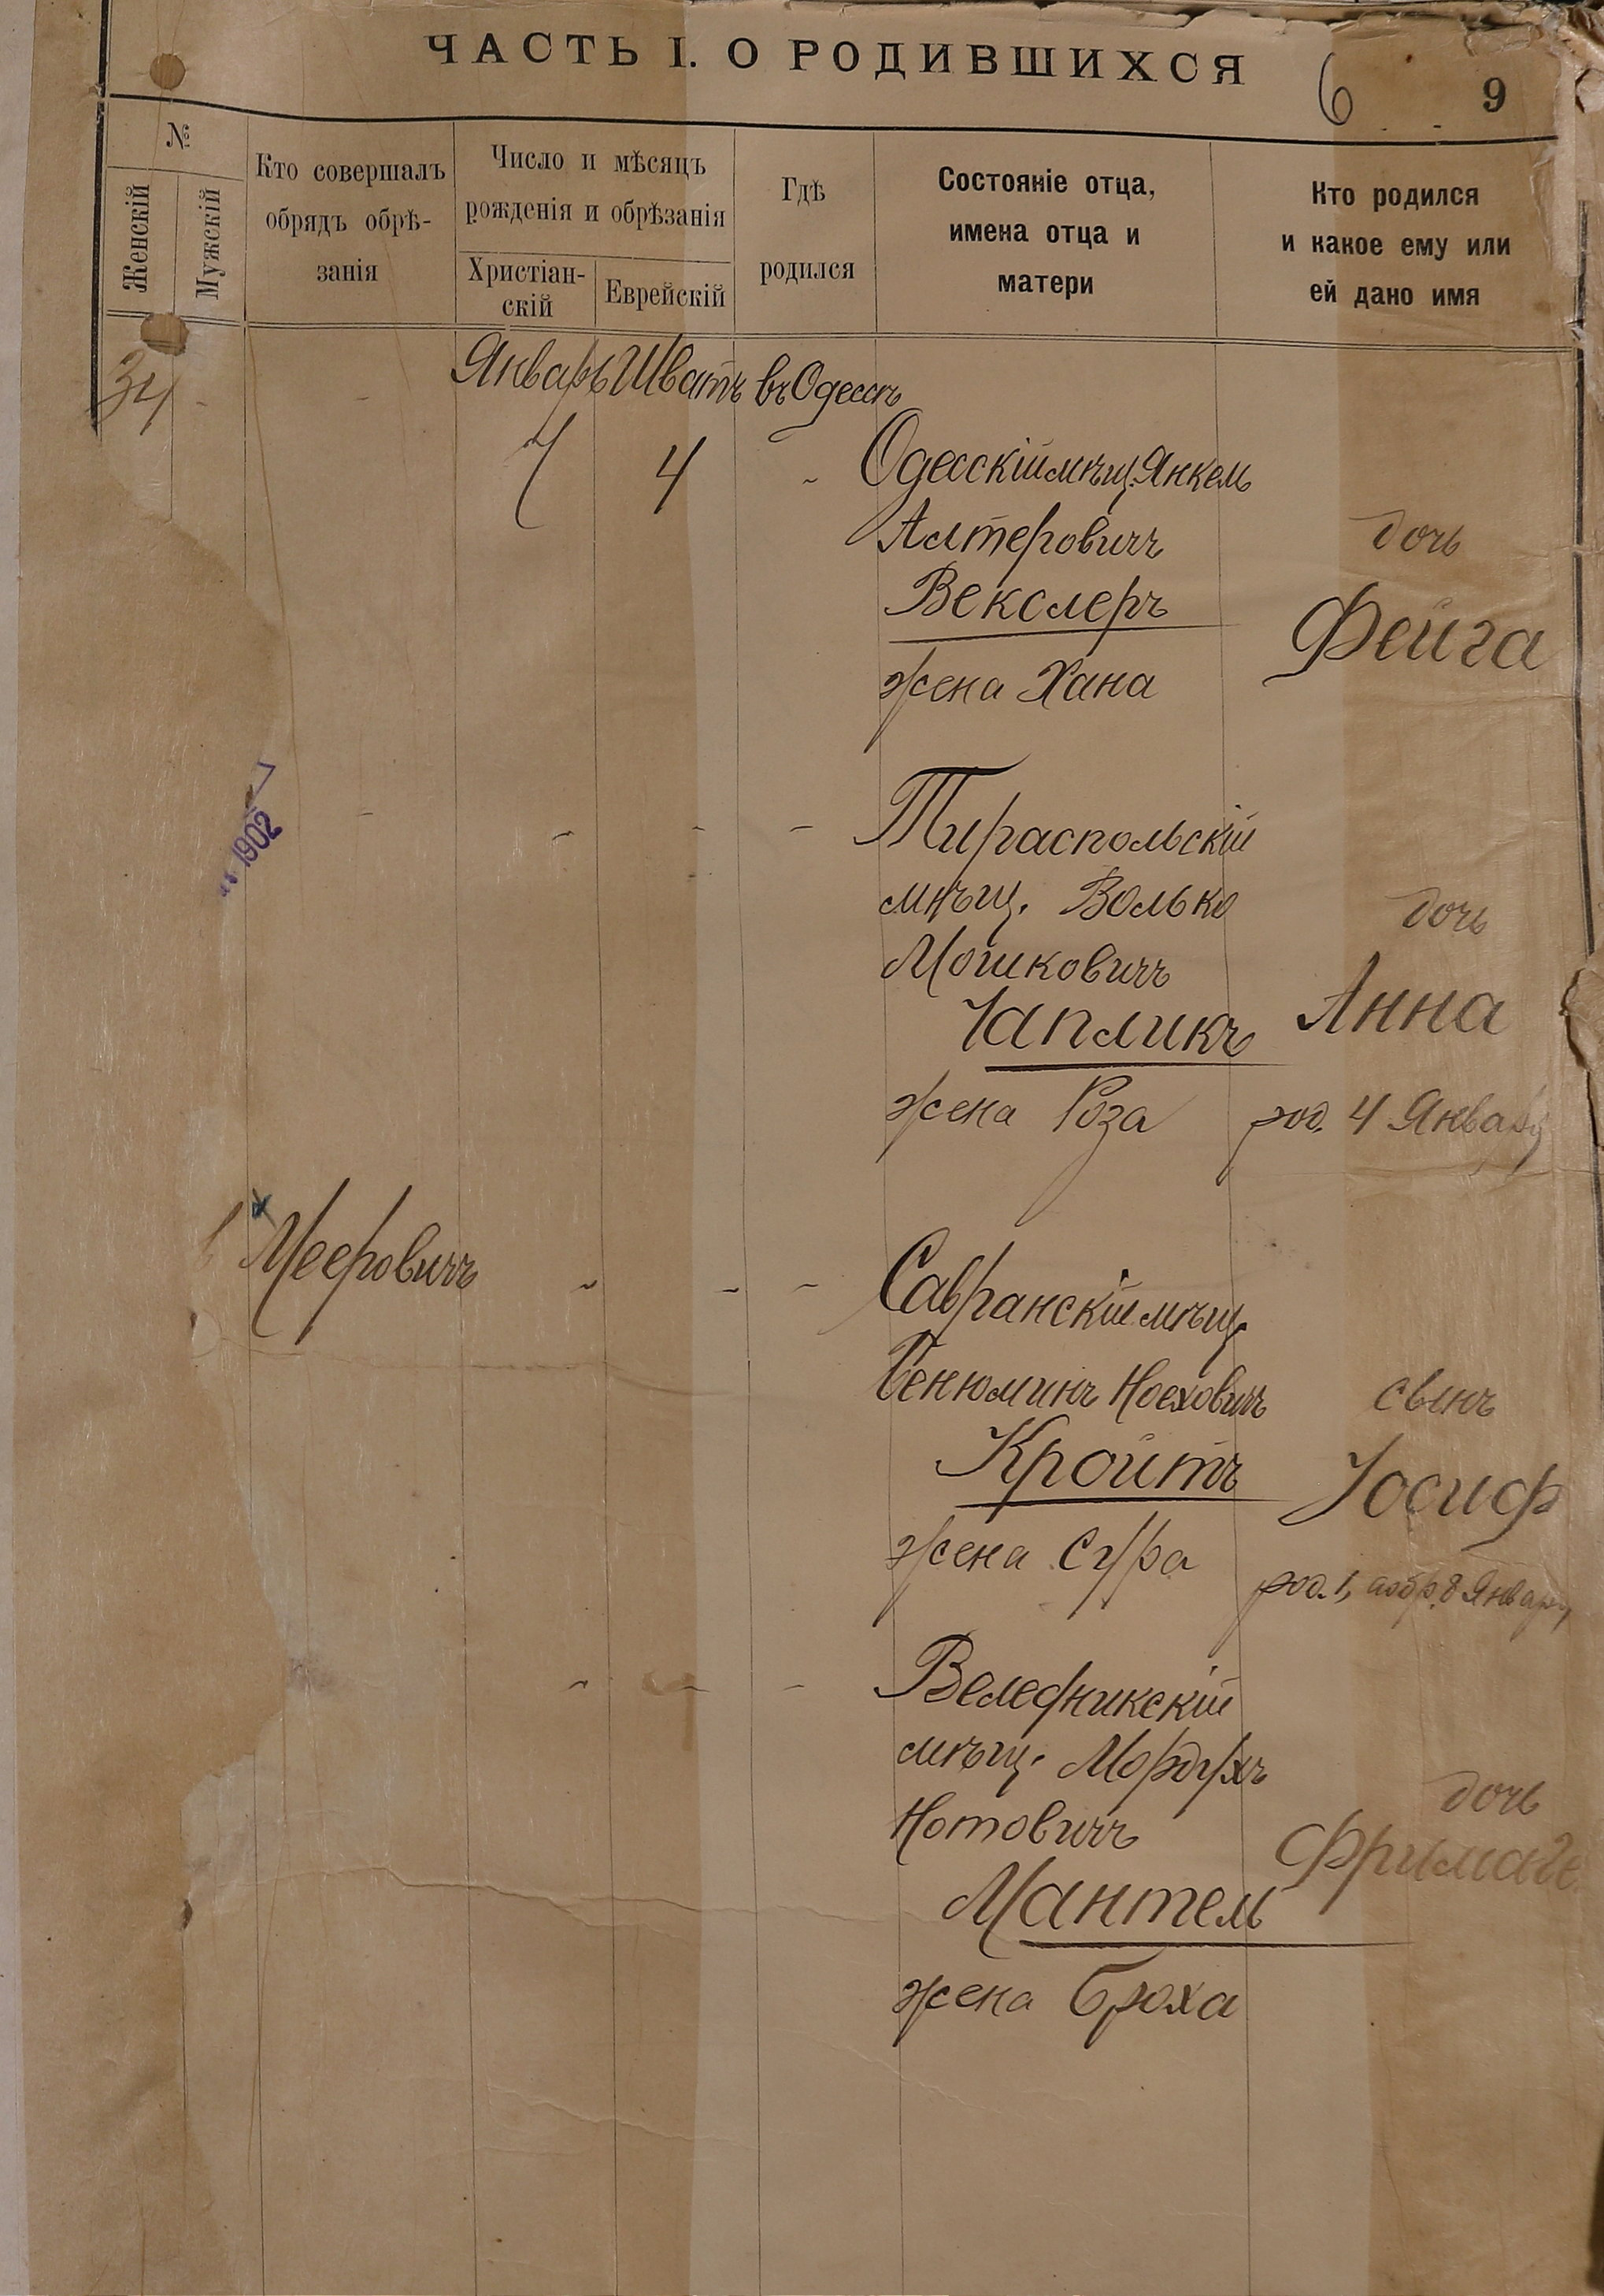 ЧАСТЬ I. О РОДИВШИХСЯ
6
9
№
Женскій
Мужскій
Кто совершалъ
обрядъ обрѣ-
занія
Число и мѣсяцъ
рожденія и обрѣзанія
Христіан-
скій
Еврейскій
Гдѣ
родился
Состояніе отца,
имена отца и
матери
Кто родился
и какое ему или
ей дано имя
34
Январь Шватъ въ Одессѣ
4
Одесскій мѣщ. Янкель
Алтеровичъ
Векслеръ
жена Хана
дочь
Фейга
1902
Тираспольскій
мѣщ. Волько
Мошковичъ
Чапликъ
жена Роза
дочь
Анна
род. 4 Января
Мееровичъ
Савранскій мѣщ.
Бенюминъ Ноеховичъ
Кройтъ
жена Сура
сынъ
Іосиф
род. 1, а обр. 8 Января
Веледникскій
мѣщ. Мордухъ
Нотовичъ
Мантель
жена Броха
дочь